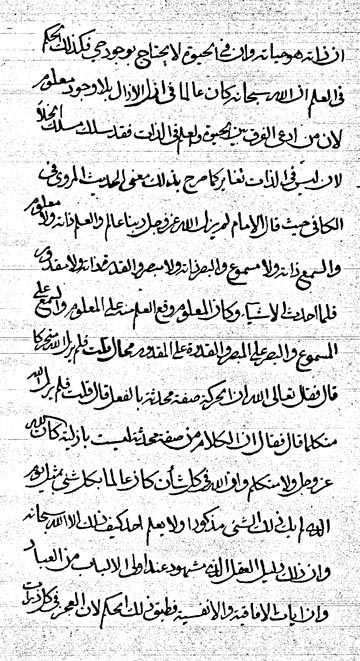 ان ذاته هو حياته وان فى الحيوة لا يحتاج بوجود حى فكذلك الحكم
فى العلم ان الله سبحانه كان عالما فى ازل الازال بلا وجود معلوم
لان من ادعى الفرق بين الحيوة والعلم فى الذات فقد سلك مسلك
لان ليس فى الذات تغاير كما صرح بذلك معنى الحديث المروى فى
الكافى حيث قال الامام لم يزل الله عز وجل ربنا عالم والعلم ذاته ولا معلوم
والسمع ذاته ولا مسموع والبصر ذاته ولا مبصر والقدرة ذاته ولا مقدور
فلما احدث الاشياء وكان المعلوم وقع العلم منه على المعلوم والسمع على
المسموع والبصر على المبصر والقدرة على المقدور قلت فلم يزل الله متحركا
قال فقال تعالى الله ان الحركة صفة محدثة بالفعل قال قلت فلم يزل الله
متكلما قال فقال ان الكلام من صفة محدثة ليست بازلية كان الله
عز وجل ولا متكلم وان الله فى كل شأن كان عالما بكل شئ
لم يك ذلك الشئ مذكورا ولا يعلم احد كيف ذلك الا الله سبحانه
وان ذلك دليل العقل مشهود عند اولى الالباب من العباد
وان ايات الافاقية والانفسية فطبق ذلك الحكم لان العجز فى كل